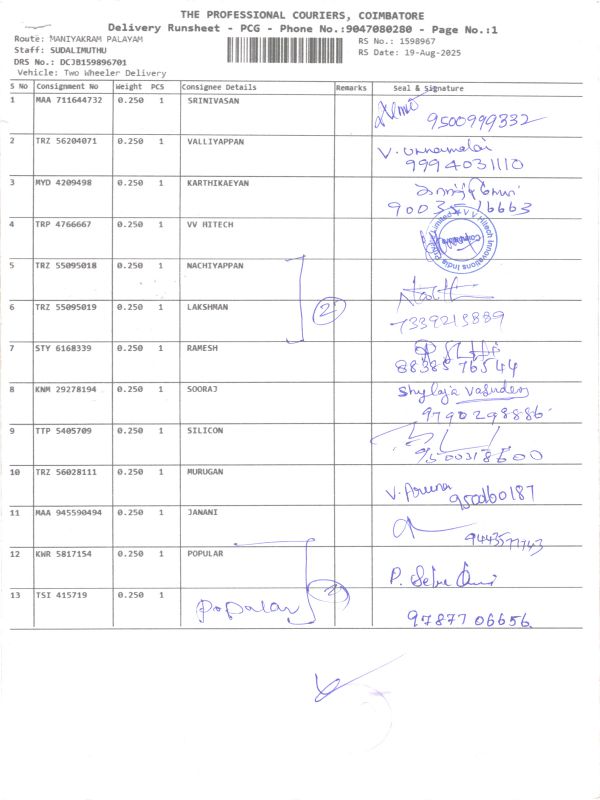 THE PROFESSIONAL COURIERS, COIMBATORE
Delivery Runsheet - PCG - Phone No.:9047080280 - Page No.:1
Route: MANIYAKRAM PALAYAM
RS No.: 1598967
Staff: SUDALIMUTHU
RS Date: 19-Aug-2025
DRS No.: DCJB159896701
Vehicle: Two Wheeler Delivery
S No Consignment No Weight PCS Consignee Details Remarks Seal & Signature
1 MAA 711644732 0.250 1 SRINIVASAN
9500999332
2 TRZ 56204071 0.250 1 VALLIYAPPAN V. Unnamalai
9994031110
3 MYD 4209498 0.250 1 KARTHIKAEYAN
90035 16663
4 TRP 4766667 0.250 1 VV HITECH
VV Hitech Innovations India Private Limited
5 TRZ 55095018 0.250 1 NACHIYAPPAN
2
6 TRZ 55095019 0.250 1 LAKSHMAN 7339215889
7 STY 6168339 0.250 1 RAMESH
8838576544
8 KNM 29278194 0.250 1 SOORAJ Shylaja Vasudev
9790298886
9 TTP 5405709 0.250 1 SILICON
9500318600
10 TRZ 56028111 0.250 1 MURUGAN
V. Aruna
11 MAA 945590494 0.250 1 JANANI
9443577743
12 KWR 5817154 0.250 1 POPULAR
P.
2
13 TSI 415719 0.250 1 Popular
9787706656